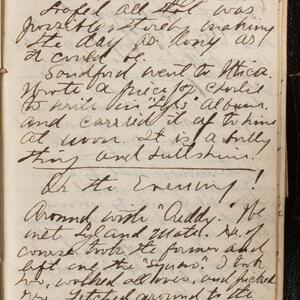 Hoped all that was
possible, thereby making
the day as long as
it could be.
Sandford went to Utica.
Wrote a piece of
to write in "Lyl's" Album.
and carried it up to him
at noon. It is a bully
thing and
On the Evening!
Around with "Reddy." We
met Lyl and Matd. He, of
course took the former and
left me the I took
her, walked all over, and
around to the